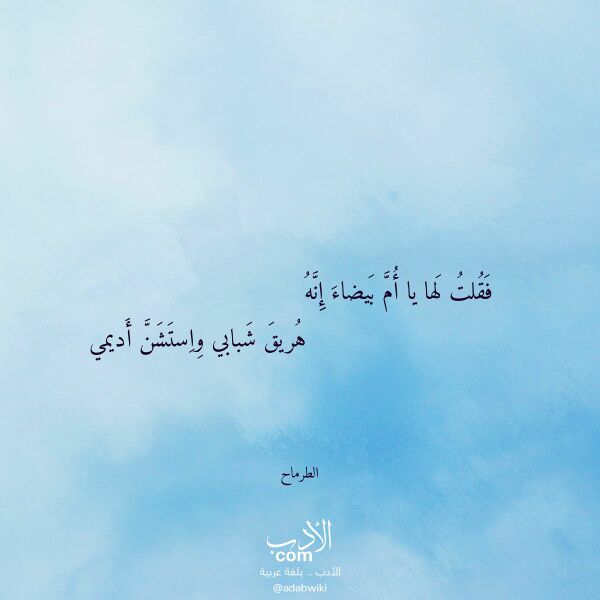 فَقُلتُ لَها يا أُمَّ بَيضاءَ إِنَّهُ
هُريقَ شَبابي وِاِستَشَنَّ أَديمي
الطرماح
الأدب
com
الأدب .. بلغة عربية
@adabwiki